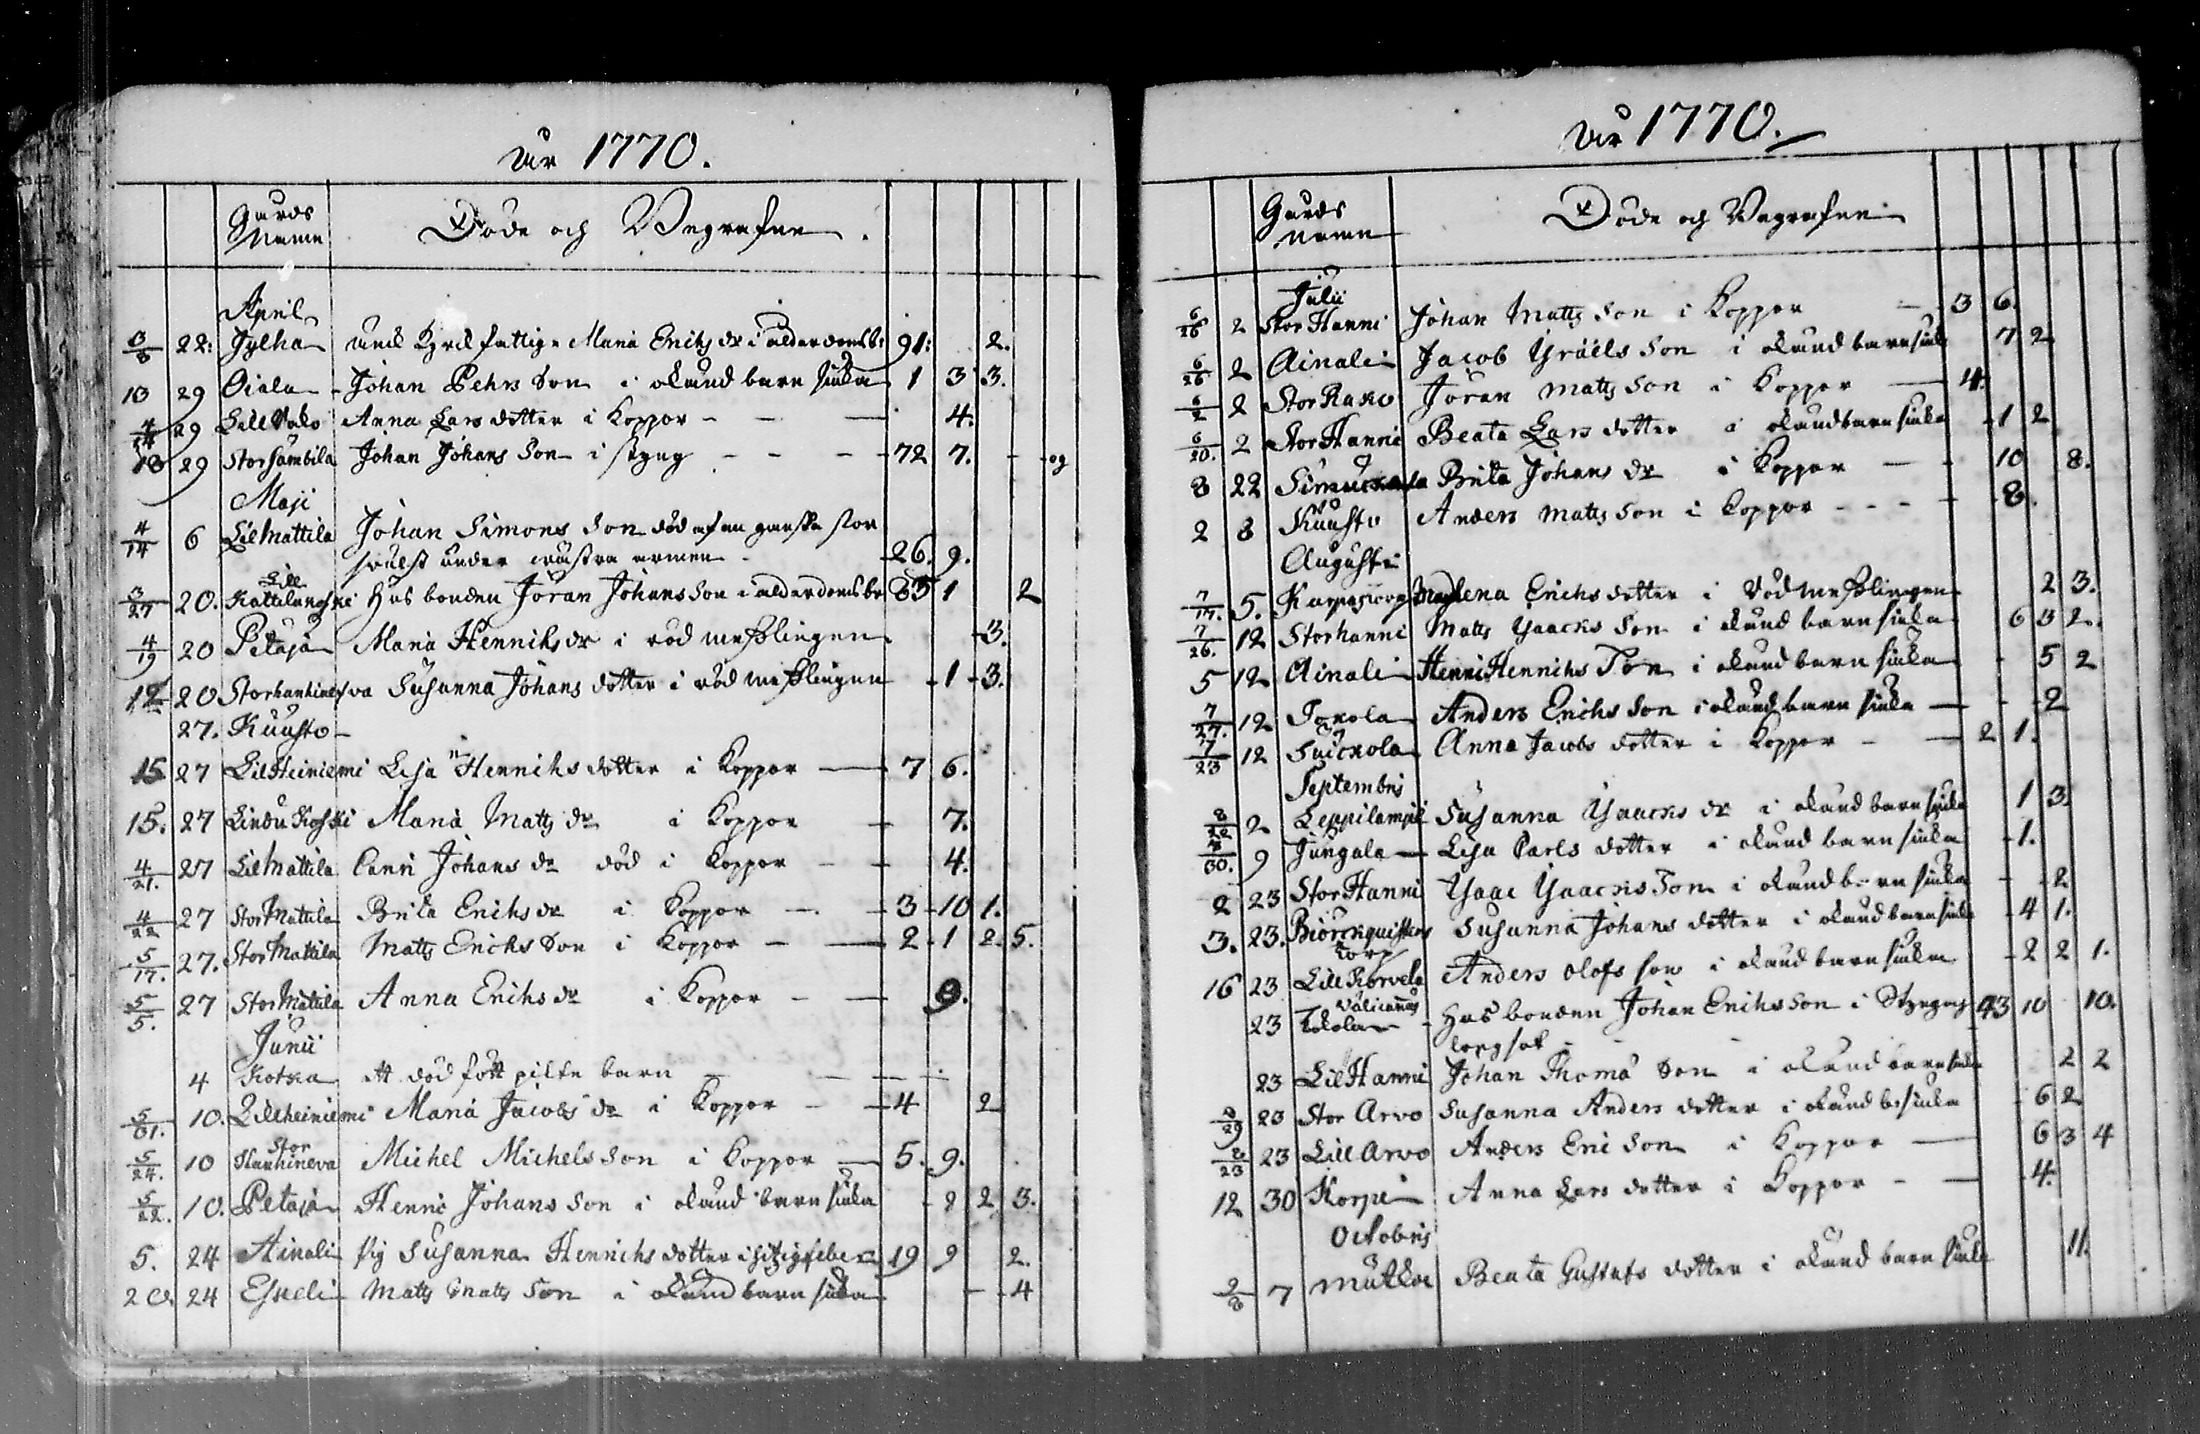 År 1770.
Gårds Namn Döde och Begrafne.
April
22: Jylhä Maria Erichs dr i ålderdomsbr 91: 2.
13 29 Oiala Johan Pehrs Son i okänd barn siuka 1 3 3.
29 Anna Lars dotter i koppor 4.
18 29 Stor Sambila Johan Johans Son i styng 72 7.
Maji
4/14 6 Lil Mattila Johan Simons Son död af en ganska stor
svulst under wänstra armen 26. 9.
Lill
3/27 20. Kattilankoski Husbonden Jöran Johans Son i ålderdomsbr 1 2
4/19 20 Petäjä Maria Henrichs dr i röd meslingen 3.
12 20 Storhanhineva Susanna Johans dotter i röd meslingen 1 3.
27. Kuusto
15 27 Lil Heiniemi Lisa Henrichs dotter i koppor 7 6.
15. 27 Lindu Koski Maria Matts dr i koppor 7.
4/21. 27 Lil Mattila Johans dr död i koppor 4.
4/22 27 Stor Mattila Brita Erichs dr i koppor 3 10 1.
5/17. 27. Stor Mattila Matts Erichs Son i koppor 2 1 2. 5.
5/5. 27 Stor Mattila Anna Erichs dr i koppor 9.
Junii
4 Kotka Ett död fött pilte barn
5/31. 10. Lillheiniemi Maria Jacobs dr i koppor 4 2
Stor
5/24. 10 Hanhineva Michel Michels Son i koppor 5. 9.
5/22. 10. Petäjä Henric Johans Son i okänd barn siuka 2 3.
5. 24 Ainali pig Susanna Henrichs dotter i hitzig feber 19 9 2.
24 Eskeli Matts Matts Son i okänd barn siuka 4
År 1770.
Gårds Namn Döde och Begrafne
Julii
6/26 2 Stor Hanni Johan Matts Son i koppor 3 6.
6/26 2 Ainali Jacob Ysraels Son i okänd barn siuk 7 2
6/2 2 Stor Rasko Jöran Matts Son i koppor 4.
6/20. 2 Stor Hanni Beata Lars dotter i okänd barn siuka 1 2
8 22 Brita Johans dr i koppor 10 8.
2 8 Kuusto Anders Matts Son i koppor 8.
Augusti
7/17. 5. Magdlena Erichs dotter i röd meslingen 2 3.
7/26. 12 Storhanni Matts Ysaacks Son i okänd barn siuka 6 3 2.
5 12 Ainali Henric Henrichs Son i okänd barn siuka 5 2
7/27. 12 Tokola Anders Erichs Son i okänd barn siuka 2
7/23 12 Suickola Anna Jacobs dotter i koppor 2 1.
Septembris
8/22 2 Leppilampi Susanna Ysaacks dr i okänd barn siuka 1 3.
8/30. 9 Jungala Lisa Carls dotter i okänd barn siuka 1.
2 23 Stor Hanni Ysaac Ysaacks Son i okänd barn siuka 2
3. 23. Biörckquists Susanna Johans dotter i okänd barn siuka 4 1.
torp
16 23 Lill Korvela Anders Olofs son i okänd barn siuka 2 2 1.
23 Tokola Husbonden Johan Erichs Son i Styng och 43 10 10.
23 Lil Hanni Johan Thomæ Son i okänd barn siuka 2 2
8/29 23 Stor Arvo Susanna Anders dotter i okänd b: siuka 6 2
8/23 23 Lill Arvo Anders Eric Son i koppor 6 3 4
12 30 Korpi Anna Lars dotter i koppor 4.
Octobris
7 Mutka Beata Gustafs dotter i okänd barn siuk 11.